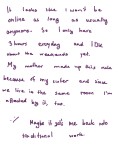 It looks like I won't be
online as long as usually
anymore. So I only have
3 hours everyday and IDK
about the weekends yet.
My mother made up this rule
because of my sister and since
we live in the same room I'm
affected by it, too.
Maybe it gets me back into
traditional work